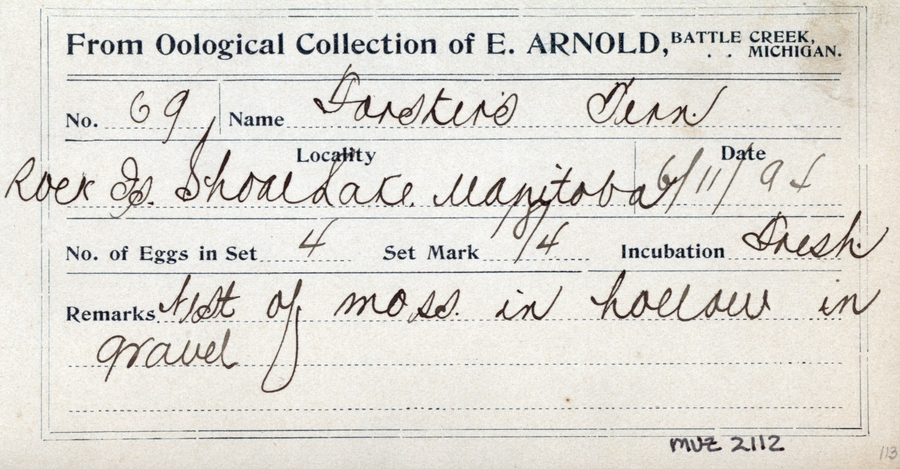 From Oological Collection of E. ARNOLD, BATTLE CREEK, MICHIGAN.
No. 69 Name Forster's Tern
Locality Date
Rock Is. Shoal Lake. Manitoba 6/11/94
No. of Eggs in Set 4 Set Mark 1/4 Incubation Fresh
Remarks Nest of moss in hollow in
gravel
MVZ 2112
113